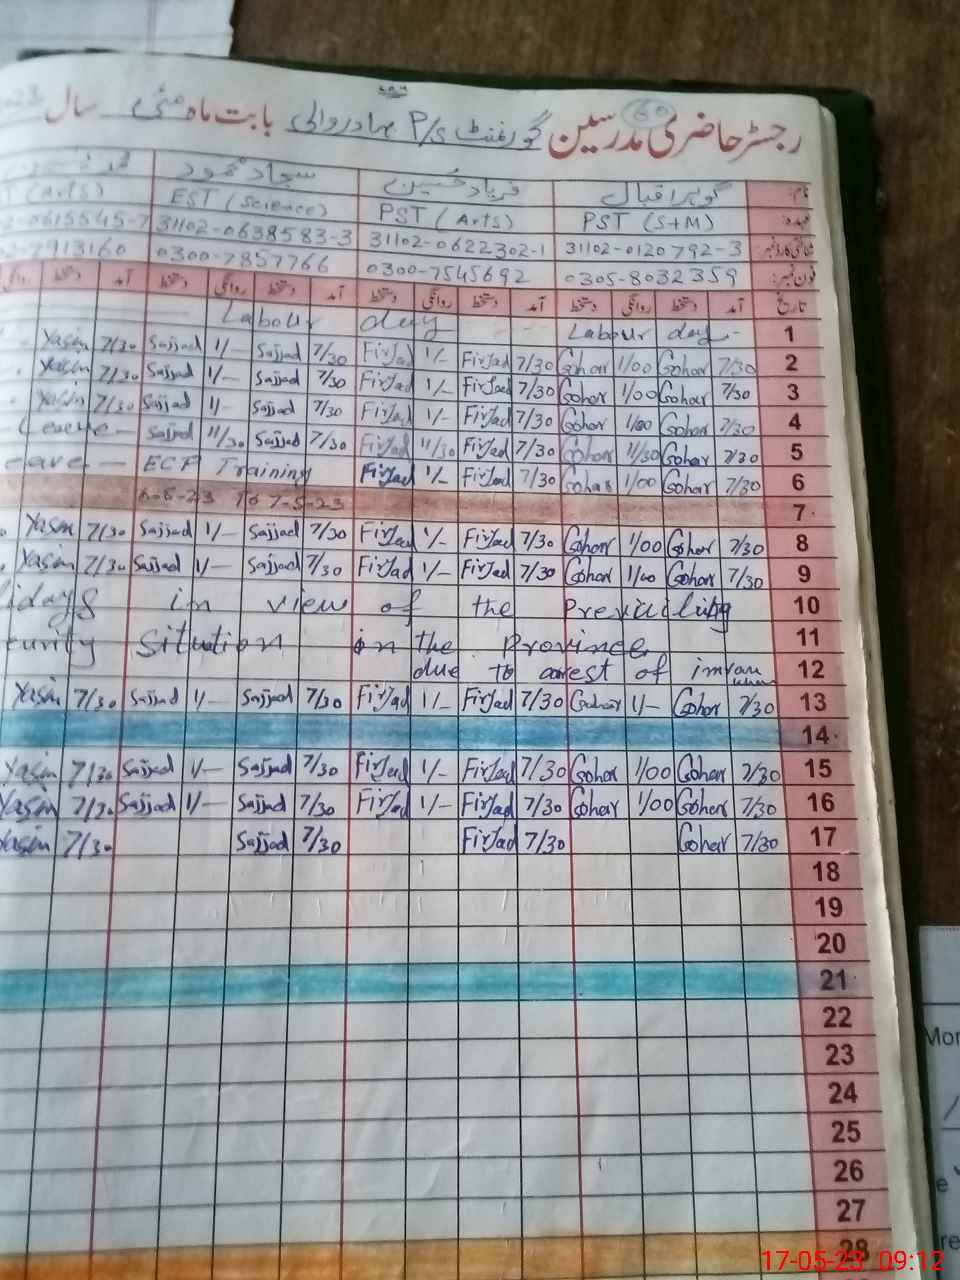 رجسٹر حاضری مدرسین گورنمنٹ P/S بہادر والی بابت ماہ مئی سال
60
نام: گوہر اقبال فریاد حسین سجاد محمود
عہدہ: PST (S+M) PST (Arts) EST (Science) (Arts)
شناختی کارڈ نمبر: 31102-0120792-3 31102-0622302-1 31102-0638583-3 -0615545-7
فون نمبر: 0305-8032359 0300-7545692 0300-7857766 -7913160
تاریخ آمد دستخط روانگی دستخط آمد دستخط روانگی دستخط آمد دستخط روانگی دستخط آمد دستخط
Labour day Labour day 1
Yasin 7/30 Sajjad 1/- Sajjad 7/30 Firjad 1/- Firjad 7/30 Gohar 1/00 Gohar 7/30 2
Yasin 7/30 Sajjad 1/- Sajjad 7/30 Firjad 1/- Firjad 7/30 Gohar 1/00 Gohar 7/30 3
Yasin 7/30 Sajjad 1/- Sajjad 7/30 Firjad 1/- Firjad 7/30 Gohar 1/00 Gohar 7/30 4
Leave - Sajjad 11/30 Sajjad 7/30 Firjad 11/30 Firjad 7/30 Gohar 11/30 Gohar 7/30 5
eave - ECP Training Firjad 1/- Firjad 7/30 Gohar 1/00 Gohar 7/30 6
6-5-23 To 7-5-23 7
Yasin 7/30 Sajjad 1/- Sajjad 7/30 Firjad 1/- Firjad 7/30 Gohar 1/00 Gohar 7/30 8
Yasin 7/30 Sajjad 1/- Sajjad 7/30 Firjad 1/- Firjad 7/30 Gohar 1/00 Gohar 7/30 9
lidays in view of the Prevailing 10
curity Situtiion in the Province 11
due to arest of imran 12
Yasin 7/30 Sajjad 1/- Sajjad 7/30 Firjad 1/- Firjad 7/30 Gohar 1/- Gohar 7/30 13
14
Yasin 7/30 Sajjad 1/- Sajjad 7/30 Firjad 1/- Firjad 7/30 Gohar 1/00 Gohar 7/30 15
Yasin 7/30 Sajjad 1/- Sajjad 7/30 Firjad 1/- Firjad 7/30 Gohar 1/00 Gohar 7/30 16
Yasin 7/30 Sajjad 7/30 Firjad 7/30 Gohar 7/30 17
18
19
20
21
22
23
24
25
26
27
28
Mon
17-05-23 09:12